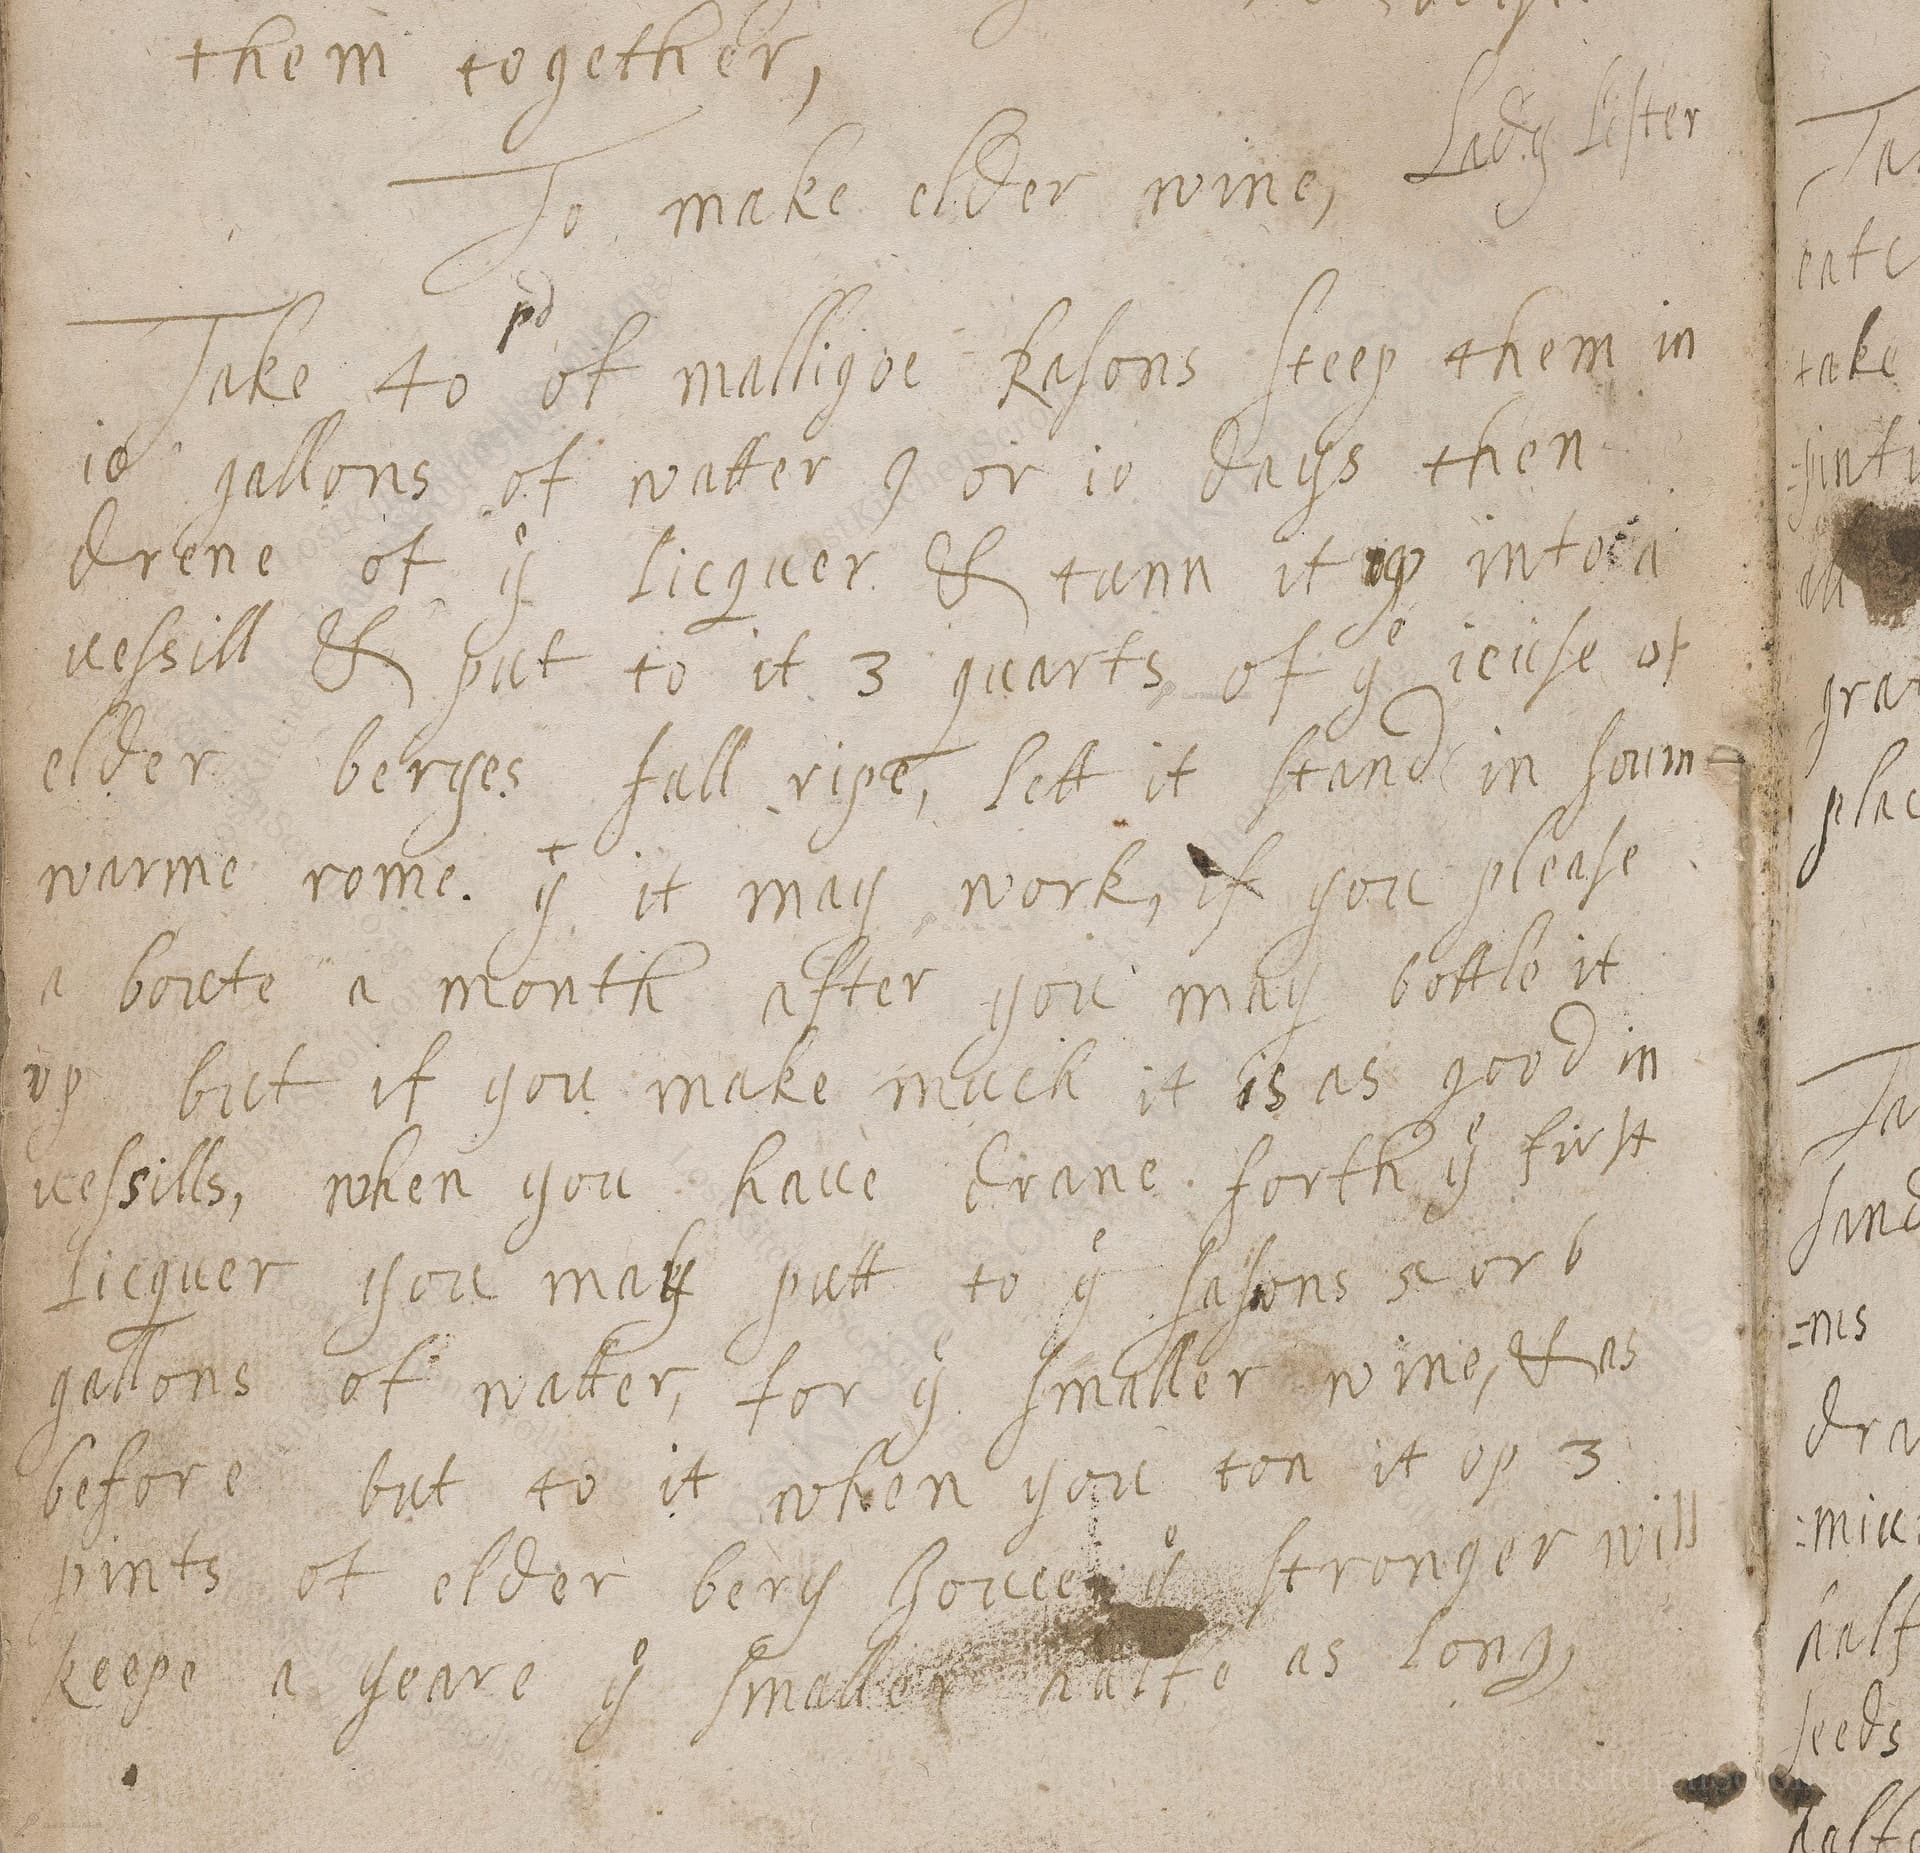 them together,
To make elder wine, Lady Lister
Take 40 pd of malligoe Rasons steep them in
10 gallons of watter 9 or 10 days then
drene of ye Licquer & tunn it up into a
uessill & put to it 3 quarts of ye ieuse of
elder beryes full ripe, Lett it stand in soum
warme rome. yt it may work, if you please
a boute a month after you may bottle it
up but if you make much it is as good in
uessills, when you haue drane forth ye first
Licquer you may putt to ye sasons 5 or 6
gallons of watter, for ye smaller wine, & as
before but to it when you ton it op 3
pints of elder bery ye stronger will
keepe a yeare ye smaller halfe as Long,
Ta
eatc
take
grat
plac
Ta
sand
=ms
dra
halt
seeds